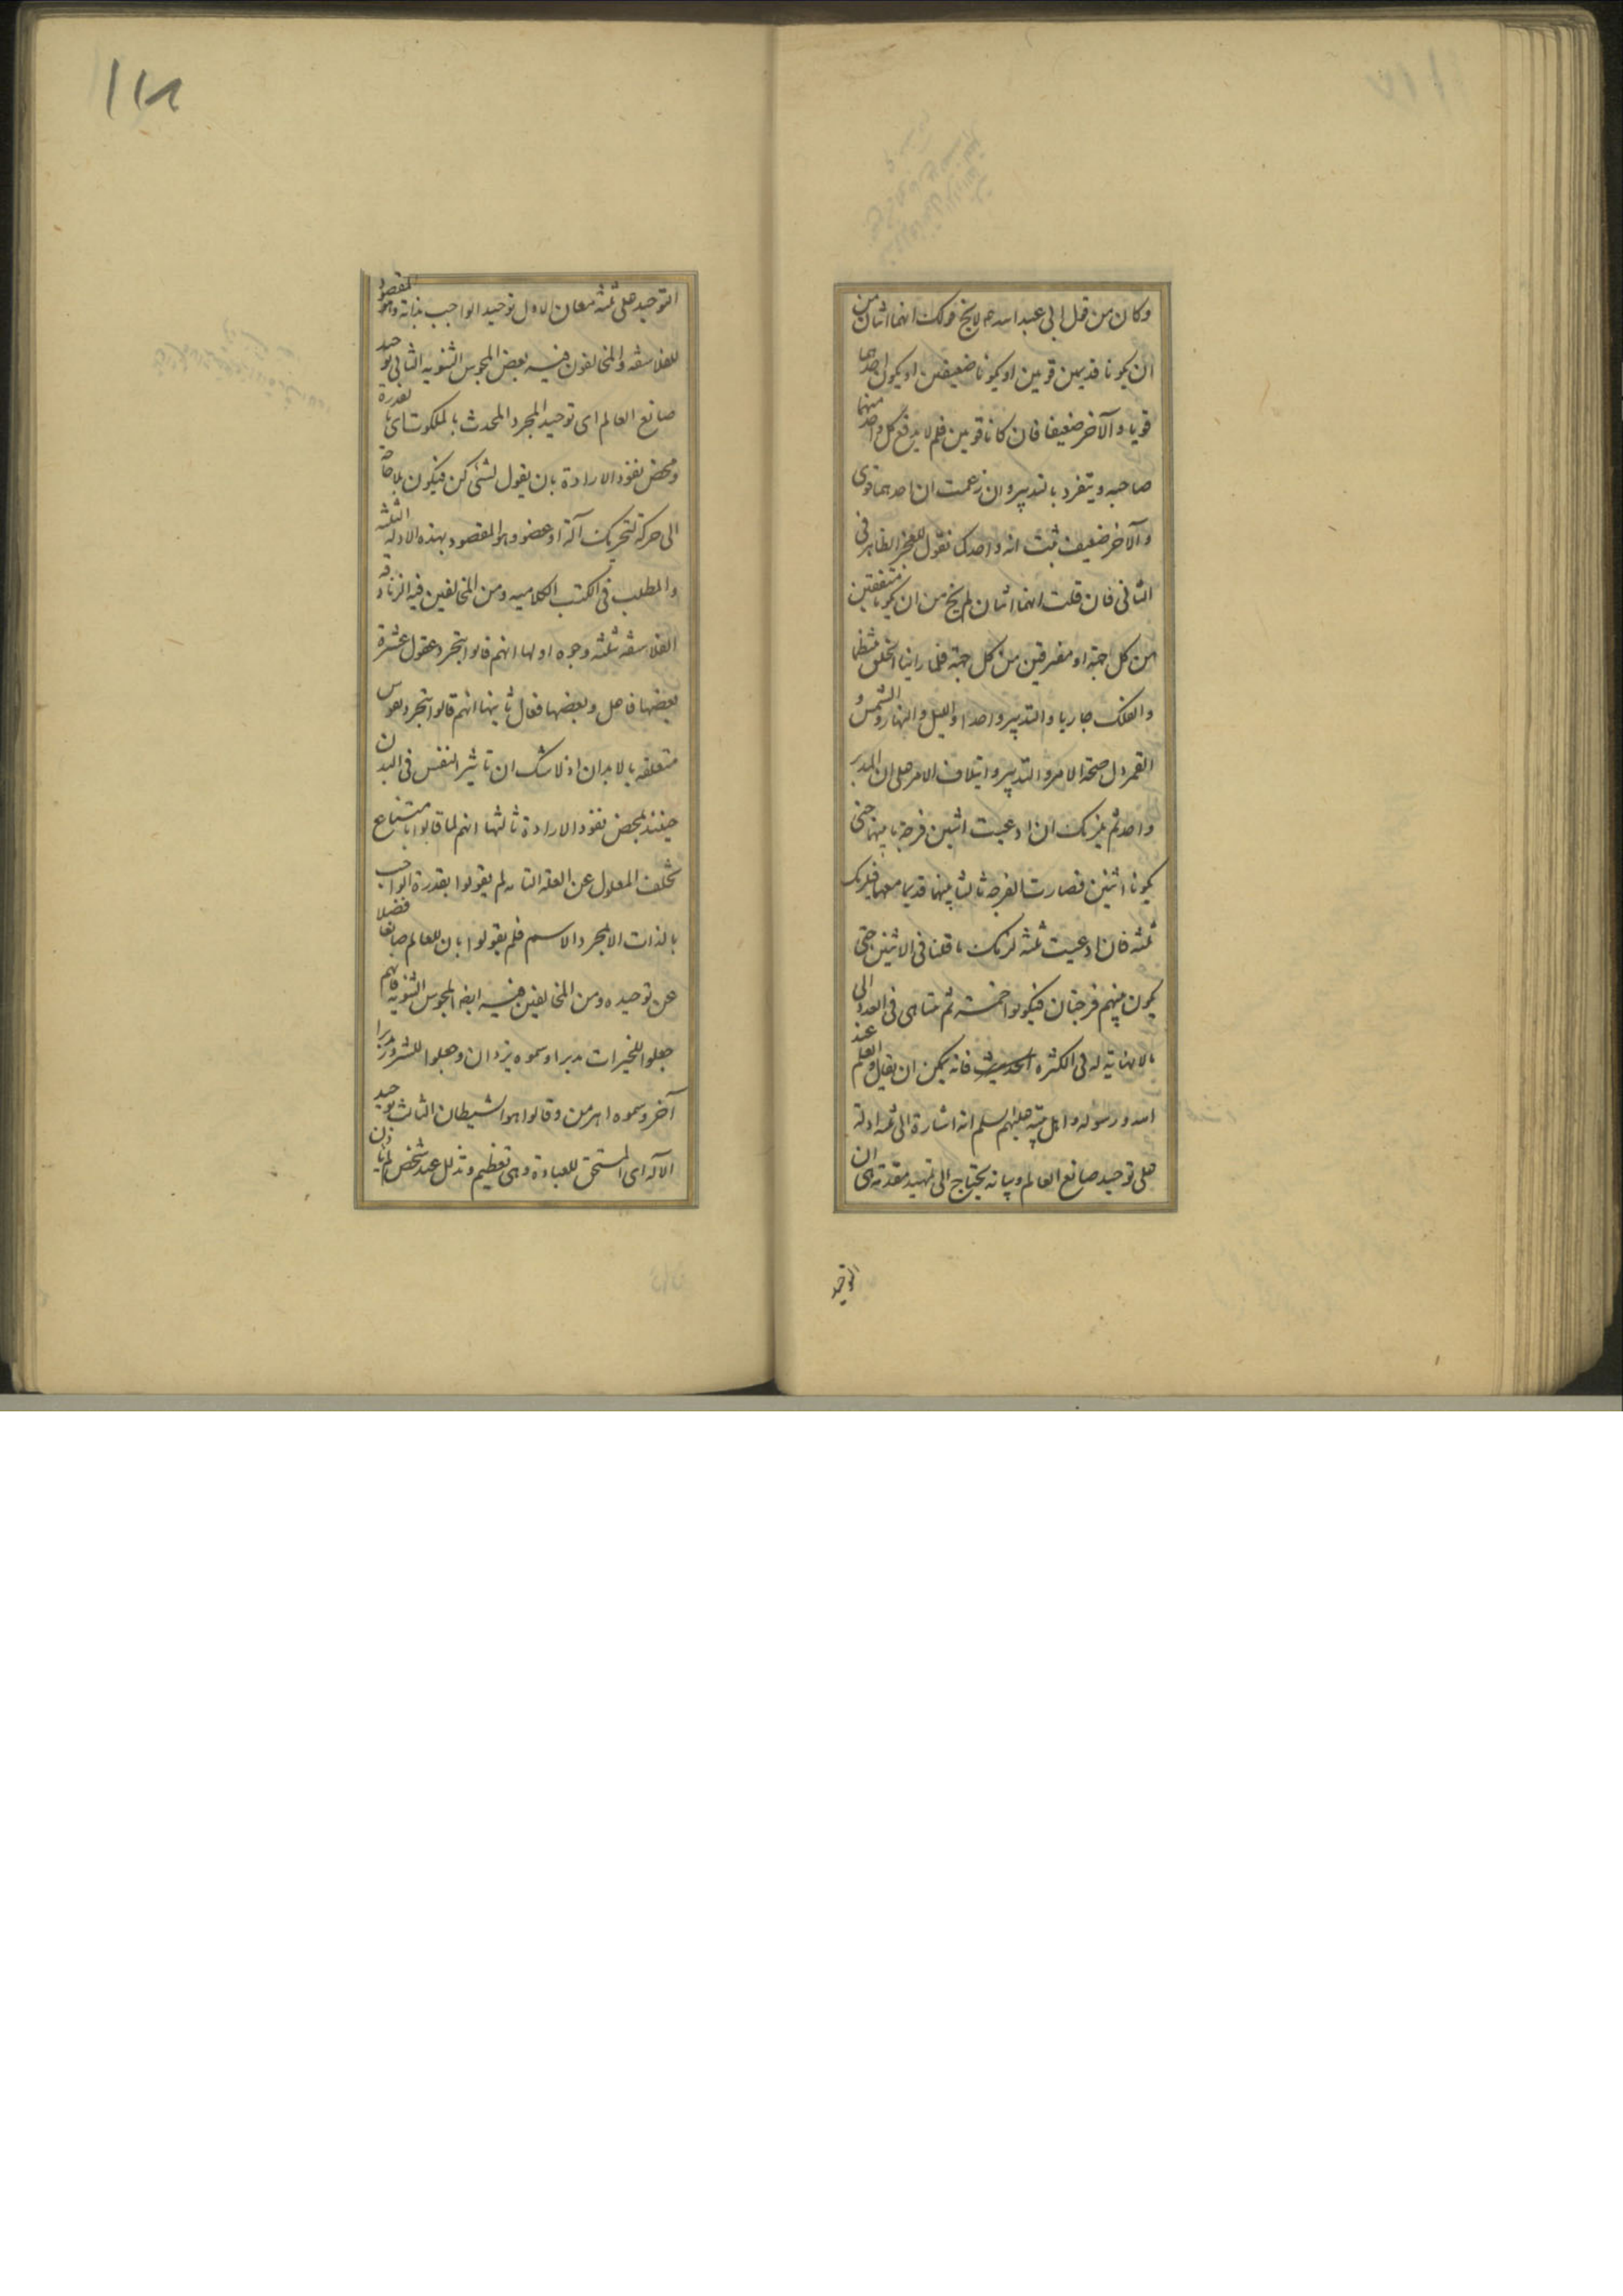 وكان من قول ابي عبد الله ع لا يخ قولك انهما اثنان من
ان يكونا قديمين قويين او يكونا ضعيفين او يكون احدهما
قويا والآخر ضعيفا فان كانا قويين فلم لا يدفع كل واحد منهما
صاحبه ويتفرد بالتدبير وان زعمت ان احدهما قوى
والآخر ضعيف ثبت انه واحد كما نقول للعجز الظاهر فى
الثانى فان قلت انهما اثنان لم يخ من ان يكونا متفقين
من كل جهة او مفترقين من كل جهة فلما راينا الخلق منتظما
والفلك جاريا والتدبير واحدا والليل والنهار والشمس و
القمر دل صحة الامر والتدبير وايتلاف الامر على ان المدبر
واحد ثم يلزمك ان ادعيت اثنين فرجة ما بينهما حتى
يكونا اثنين فصارت الفرجة ثالثا بينهما قديما معهما فيلزمك
ثلثة فان ادعيت ثلثة لزمك ما قلنا فى الاثنين حتى
يكون بينهم فرجتان فيكونوا خمسة ثم يتناهى فى العدد الى
ما لا نهاية له فى الكثرة الحديث فانه يمكن ان يقال والعلم عند
الله ورسوله واهل بيته عليهم السلم انه اشارة الى ثلثة ادلة
على توحيد صانع العالم وبيانه يحتاج الى تمهيد مقدمة هى ان
التوحيد
١١٨
التوحيد على ثلثة معان الاول توحيد الواجب بذاته وهو المقصود
للفلاسفة والمخالفون فيه بعض المجوس الثنوية الثانى توحيد
صانع العالم اى توحيد المجرد المحدث بالملكوت اى بالقدرة
ومحض نفوذ الارادة بان يقول لشئ كن فيكون بلا حاجة
الى حركة لتحريك آلة او عضو وهو المقصود بهذه الادلة الثلثة
والمطلب فى الكتب الكلامية ومن المخالفين فيه الزنادقة
الفلاسفة بثلثة وجوه اولها انهم قالوا بتجرد عقول عشرة
بعضها فاعل وبعضها فعال ثانيها انهم قالوا بتجرد نفوس
متعلقة بالابدان اذ لا شك ان تاثير النفس فى البدن
حينئذ بمحض نفوذ الارادة ثالثها انهم لما قالوا بامتناع
تخلف المعلول عن العلة التامه لم يقولوا بقدرة الواجب
بالذات الا بمجرد الاسم فلم يقولوا بان للعالم صانعا فضلا
عن توحيده ومن المخالفين فيه ايضا المجوس الثنوية فانهم
جعلوا للخيرات مدبرا وسموه يزدان وجعلوا للشرور مدبرا
آخر وسموه اهرمن وقالوا هو الشيطان الثالث توحيد
الآله اى المستحق للعبادة وهى تعظيم وتذلل عبد شخص لم يأذن